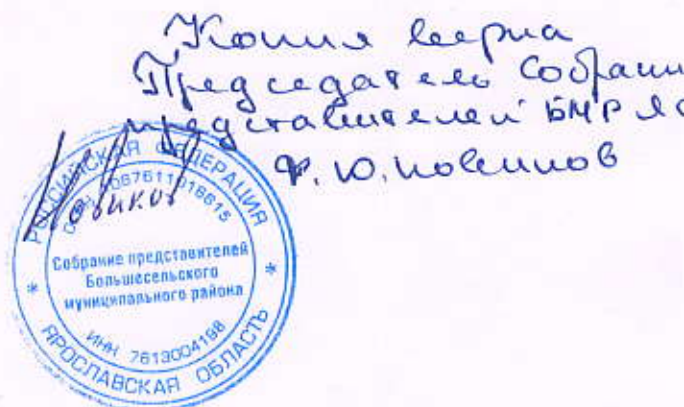 Копия верна
Председатель Собрания
представителей БМР ЯО
Ф. Ю. Новиков
РОССИЙСКАЯ ФЕДЕРАЦИЯ
Собрание представителей
Большесельского
муниципального района
ИНН 7613004198
* ЯРОСЛАВСКАЯ ОБЛАСТЬ *